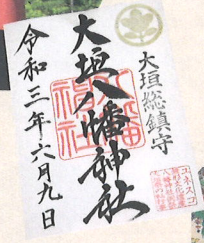 大垣総鎮守
大垣八幡神社
令和三年六月九日
ユネスコ